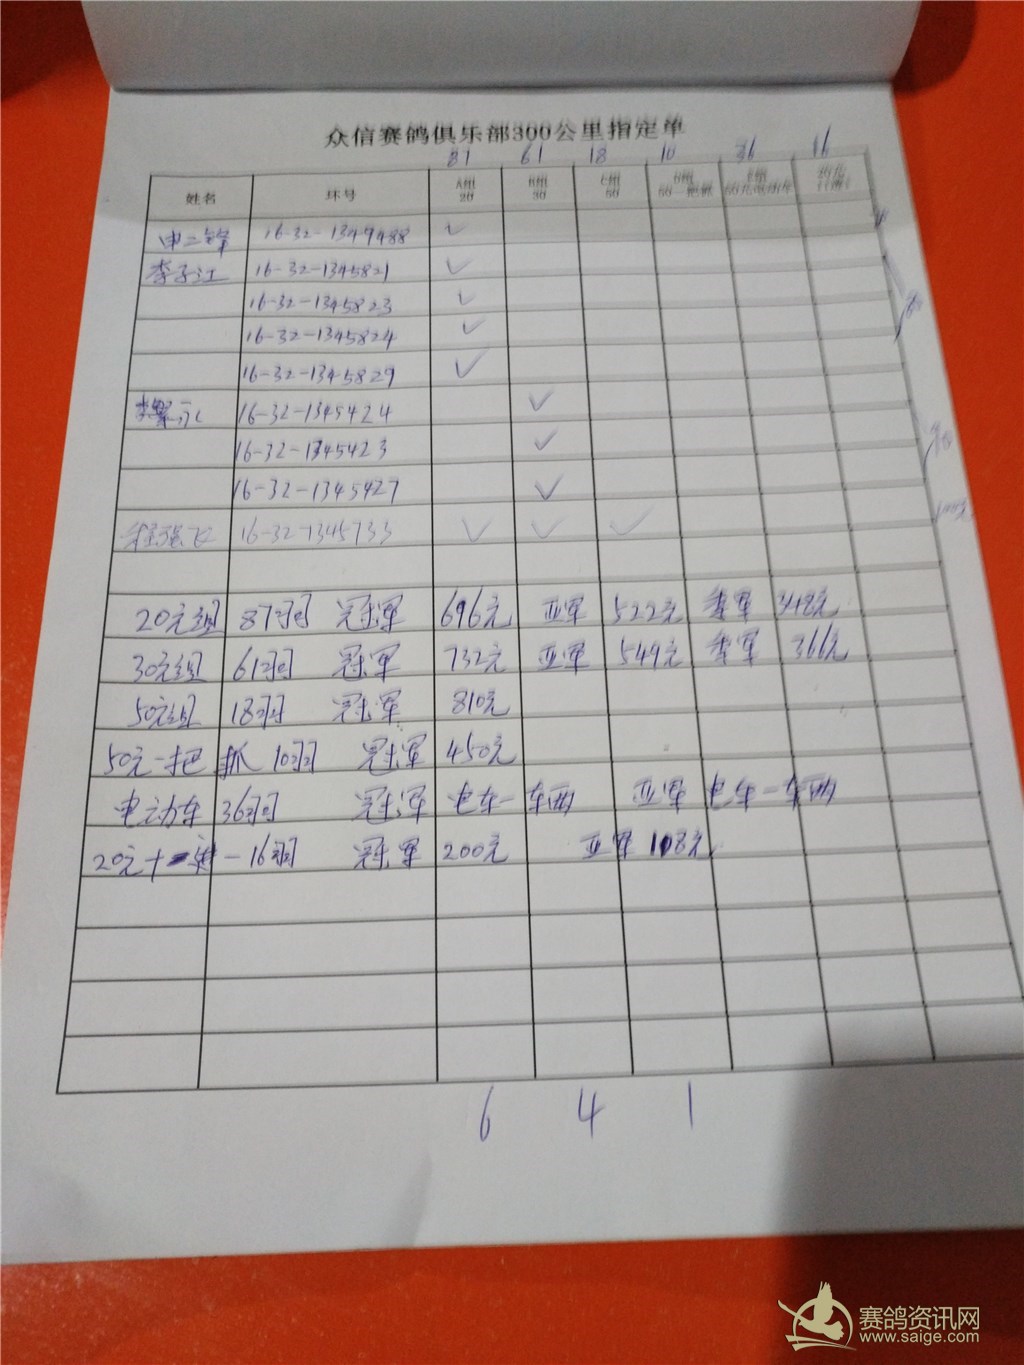 众信赛鸽俱乐部300公里指定单
81 61 18 10 36 16
姓名 环号 A组 20 B组 30 C组 50 D组 50一把抓 E组
申二锋 16-32-1349488 ✓
李子江 16-32-1345821 ✓
16-32-1345823 ✓
16-32-1345824 ✓
16-32-1345829 ✓
16-32-1345424 ✓
16-32-1345423 ✓
16-32-1345427 ✓
程强飞 16-32-1345733 ✓ ✓ ✓
20元组 87羽 冠军 696元 亚军 522元 季军 348元
30元组 61羽 冠军 732元 亚军 549元 季军 366元
50元组 18羽 冠军 810元
50元一把抓 10羽 冠军 450元
电动车 36羽 冠军 电车一车两 亚军 电车一车两
20元十 一 16羽 冠军 200元 亚军 108元
6 4 1
赛鸽资讯网
www.saige.com